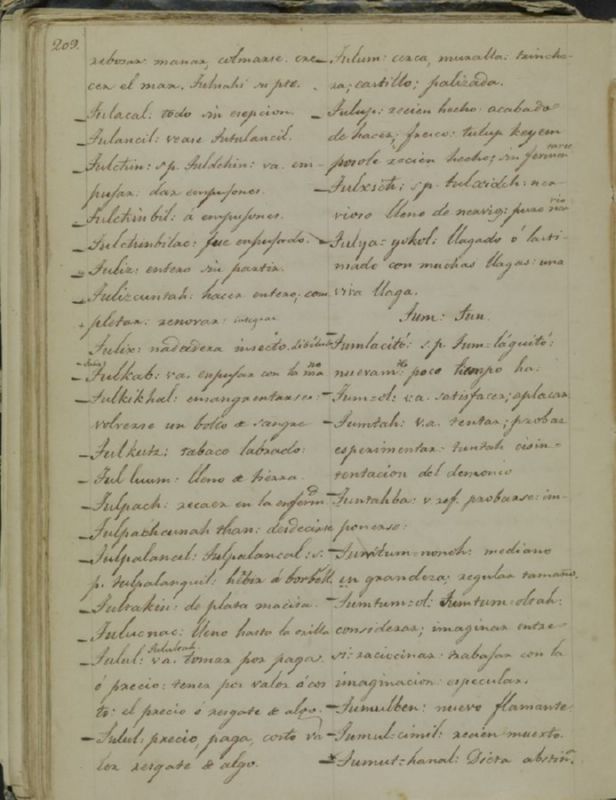 209.
rebosar: manar, colmarse. cre-
cer el mar. Tulnahi su pto.
Tulacal: todo sin ecepcion.
Tulancil: vease Tutulancil.
Tulchin: s.p. Tuldchin: va. em-
pujar: dar empujones.
Tulchinbil: á empujones.
Tulchinbilac: fue empujado.
Tuliz: entero sin partir.
Tulizcuntah: hacer entero; com
pletar: renovar: integrar
Tulix: nadadera insecto. libélula
Tulkab: va. empujar con la mano
Tulkikhal: ensangrentarse:
volverse un bolso de sangre
Tulkutz: tabaco labrado:
Tul luum: lleno de tierra.
Tulpach: recaer en la enfermd
Tulpachcunah than: desdecirse
Tulpalancil: Tulpalancal: s.
p. tulpalanquil: hibir á borboll.
Tultakin: de plata maciza.
Tulucnac: lleno hasta la orilla
Tulul: va. Tulultah tomar por paga
ó precio: tener por valor ó cos
to: el precio ó resgate de algo.
Tulul: precio, paga, costo va-
lor resgate de algo.
Tulum: cerca, muralla: trinche-
ra; castillo; palizada.
Tulup: recien hecho: acabado
de hacer; fresco: tulup keyem
posole recien hecho; sin fermen
tarse
Tulxich; s.p. tulxidch: ner-
vioso lleno de nervios: puro ner
vio
Tulya: yokol: llagado ó lasti-
mado con muchas llagas: una
viva llaga.
Tum: Tun.
Tumlacitó: s.p. Tum=láquitó:
nuevamte poco tiempo ha:
Tum=ol: va. satisfacer; aplacar
Tumtah: v.a. tentar; probar
esperimentar: tuntah cisin=
tentacion del demonio
Tuntahba: v ref. probarse: im-
ponerse:
Tumtum-nonoh: mediano
en grandeza; regular tamaño.
Tumtum=ol: Tumtum=oltah:
considerar; imaginar entre
si: raciocinar: trabajar con la
imaginacion: especular.
Tumulben: nuevo flamante.
Tumul-cimil: recien muerto
Tumut=hanal: Dieta abstinª.